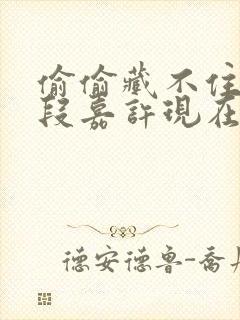 偷偷藏不住
段嘉許現在
德安德鲁-喬